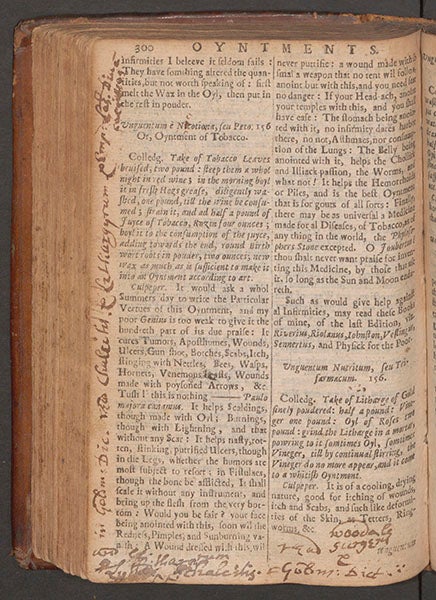 300 OYNTMENTS.
infirmities I beleeve it seldom fails :
They have somthing altered the quan-
tities, but not worth speaking of : first
melt the Wax in the Oyl, then put in
the rest in pouder.
Unguentum è Nicotiana, seu Peto. 156
Or, Oyntment of Tobacco.
Colledg. Take of Tobacco Leaves
bruised, two pound : steep them a whol
night in red wine ; in the morning boyl
it in fresh Hogs grease, diligently wa-
shed, one pound, till the wine be consu-
med ; strain it, and ad half a pound of
Juyce of Tobacco, Rozin four ounces ;
boyl it to the consumption of the juyce,
adding towards the end, round birth-
wort roots in pouder, two ounces ; new
wax as much as is sufficient to make it
into an Oyntment according to art.
Culpeper. It would ask a whol
Summers day to write the Particular
Vertues of this Oyntment, and my
poor Genius is too weak to give it the
hundreth part of its due praise : It
cures Tumors, Aposthumes, Wounds,
Ulcers, Gun shot, Botches, Scabs, Itch,
stinging with Nettles, Bees, Wasps,
Hornets, Venemous Beasts, Wounds
made with poysoned Arrows, &c.
Tush ! this is nothing — Paulo
majora canamus. It helps Scaldings,
though made with Oyl ; Burnings,
though with Lightning, and that
without any Scar : It helps nasty, rot-
ten, stinking, putrified Ulcers, though
in the Legs, whether the humors are
most subject to resort : in Fistulaes,
though the bone be afflicted, It shall
scale it without any instrument, and
bring up the flesh from the very bot-
tom : Would you be fair ? your face
being anointed with this, soon will the
Redness, Pimples, and Sunburning va-
nish : A Wound dressed with this, wil
never putrifie : a wound made with
smal a weapon that no tent will follow,
anoint but with this, and you need fear
no danger : If your Head ach, anoint
your temples with this, and you shall
have ease : The stomach being anoin-
ted with it, no infirmity dares harbor
there, no not, Asthmaes, nor consump-
tion of the Lungs : The Belly being
anointed with it, helps the Chollick
and Illiack passion, the Worms, and
what not ! It helps the Hemorrhoids
or Piles, and is the best Oyntment
that is for gouts of all sorts : Finally,
there may be as universal a Medicine
made for al Diseases, of Tobacco, as
any thing in the world, the Philoso-
phers Stone excepted. O Joubertus !
thou shalt never want praise for inven-
ting this Medicine, by those that use
it, so long as the Sun and Moon endu-
reth.
Such as would give help against
al Infirmities, may read these Books
of mine, of the last Edition, viz.
Riverius, Riolanus, Johnston, Veslingus,
Sennertus, and Physick for the Poor.
Unguentum Nutritum, seu Tri-
farmacum. 156.
Colledg. Take of Litharge of Gold
finely poudered : half a pound : Vine-
ger one pound : Oyl of Roses two
pound : grind the Litharge in a mortar,
powring to it somtimes Oyl, somtimes
Vineger, till by continual stirring, the
Vineger do no more appear, and it come
to a whitish Oyntment.
Culpeper. It is of a cooling, drying
nature, good for itching of wounds,
itch and Scabs, and such like deformi-
ties of the Skin, as Tetters, Ring-
worms, &c.
Unguentum